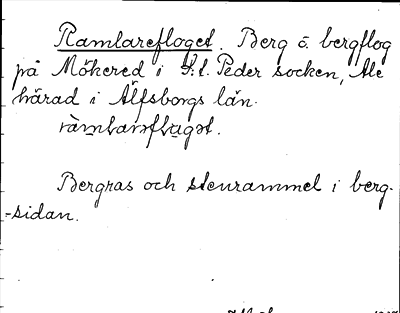 Ramlarefloget. Berg o. bergflog
på Mökered i S:t Peder socken, Ale
härad i Älfsborgs län.
Bergras och stenrammel i berg-
-sidan.